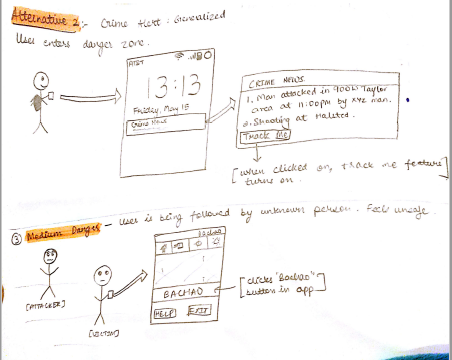 Alternative 2:- Crime Alert : Generalized
User enters danger zone.
AT&T
13:13
Friday, May 15
Crime News
CRIME NEWS.
1. Man attacked in 900W Taylor
area at 11:00pm by xyz man.
2. Shooting at Halsted.
Track Me
[when clicked on, track me feature]
turns on.
③ Medium Danger - User is being followed by unknown person. Feels unsafe.
Bachao
BACHAO
HELP EXIT
[clicks "Bachao"
button in app
[ATTACKER]
[VICTIM]